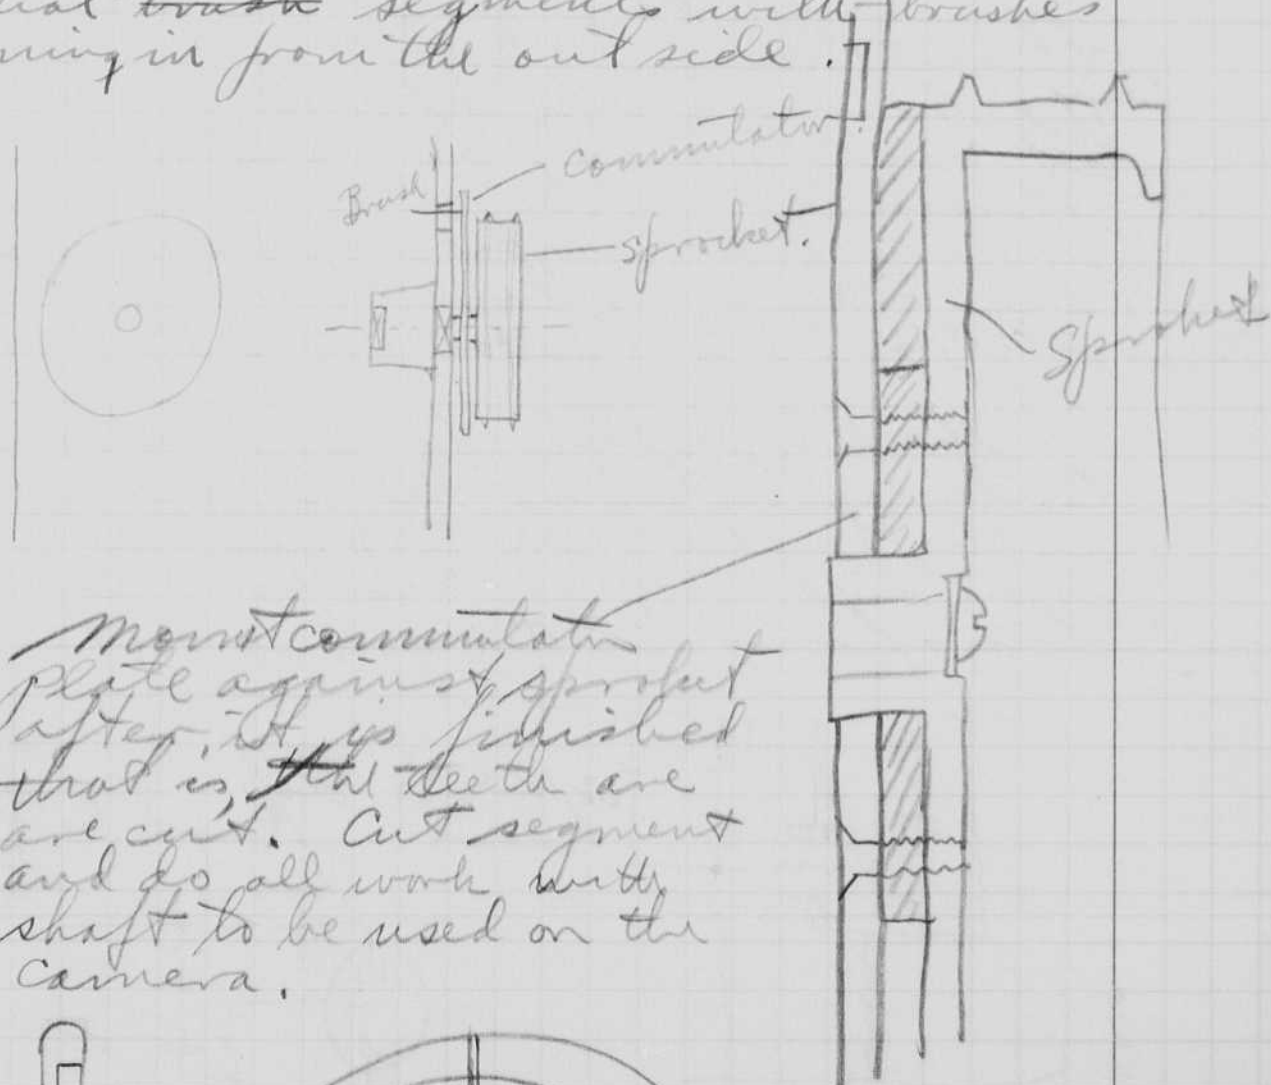 segments with brushes
in from the outside.
Commutator
Brush
sprocket.
Sprocket
Mount commutator
plate against sprocket
after it is finished
that is, the teeth are
are cut. Cut segment
and do all work with
shaft to be used on the
camera.